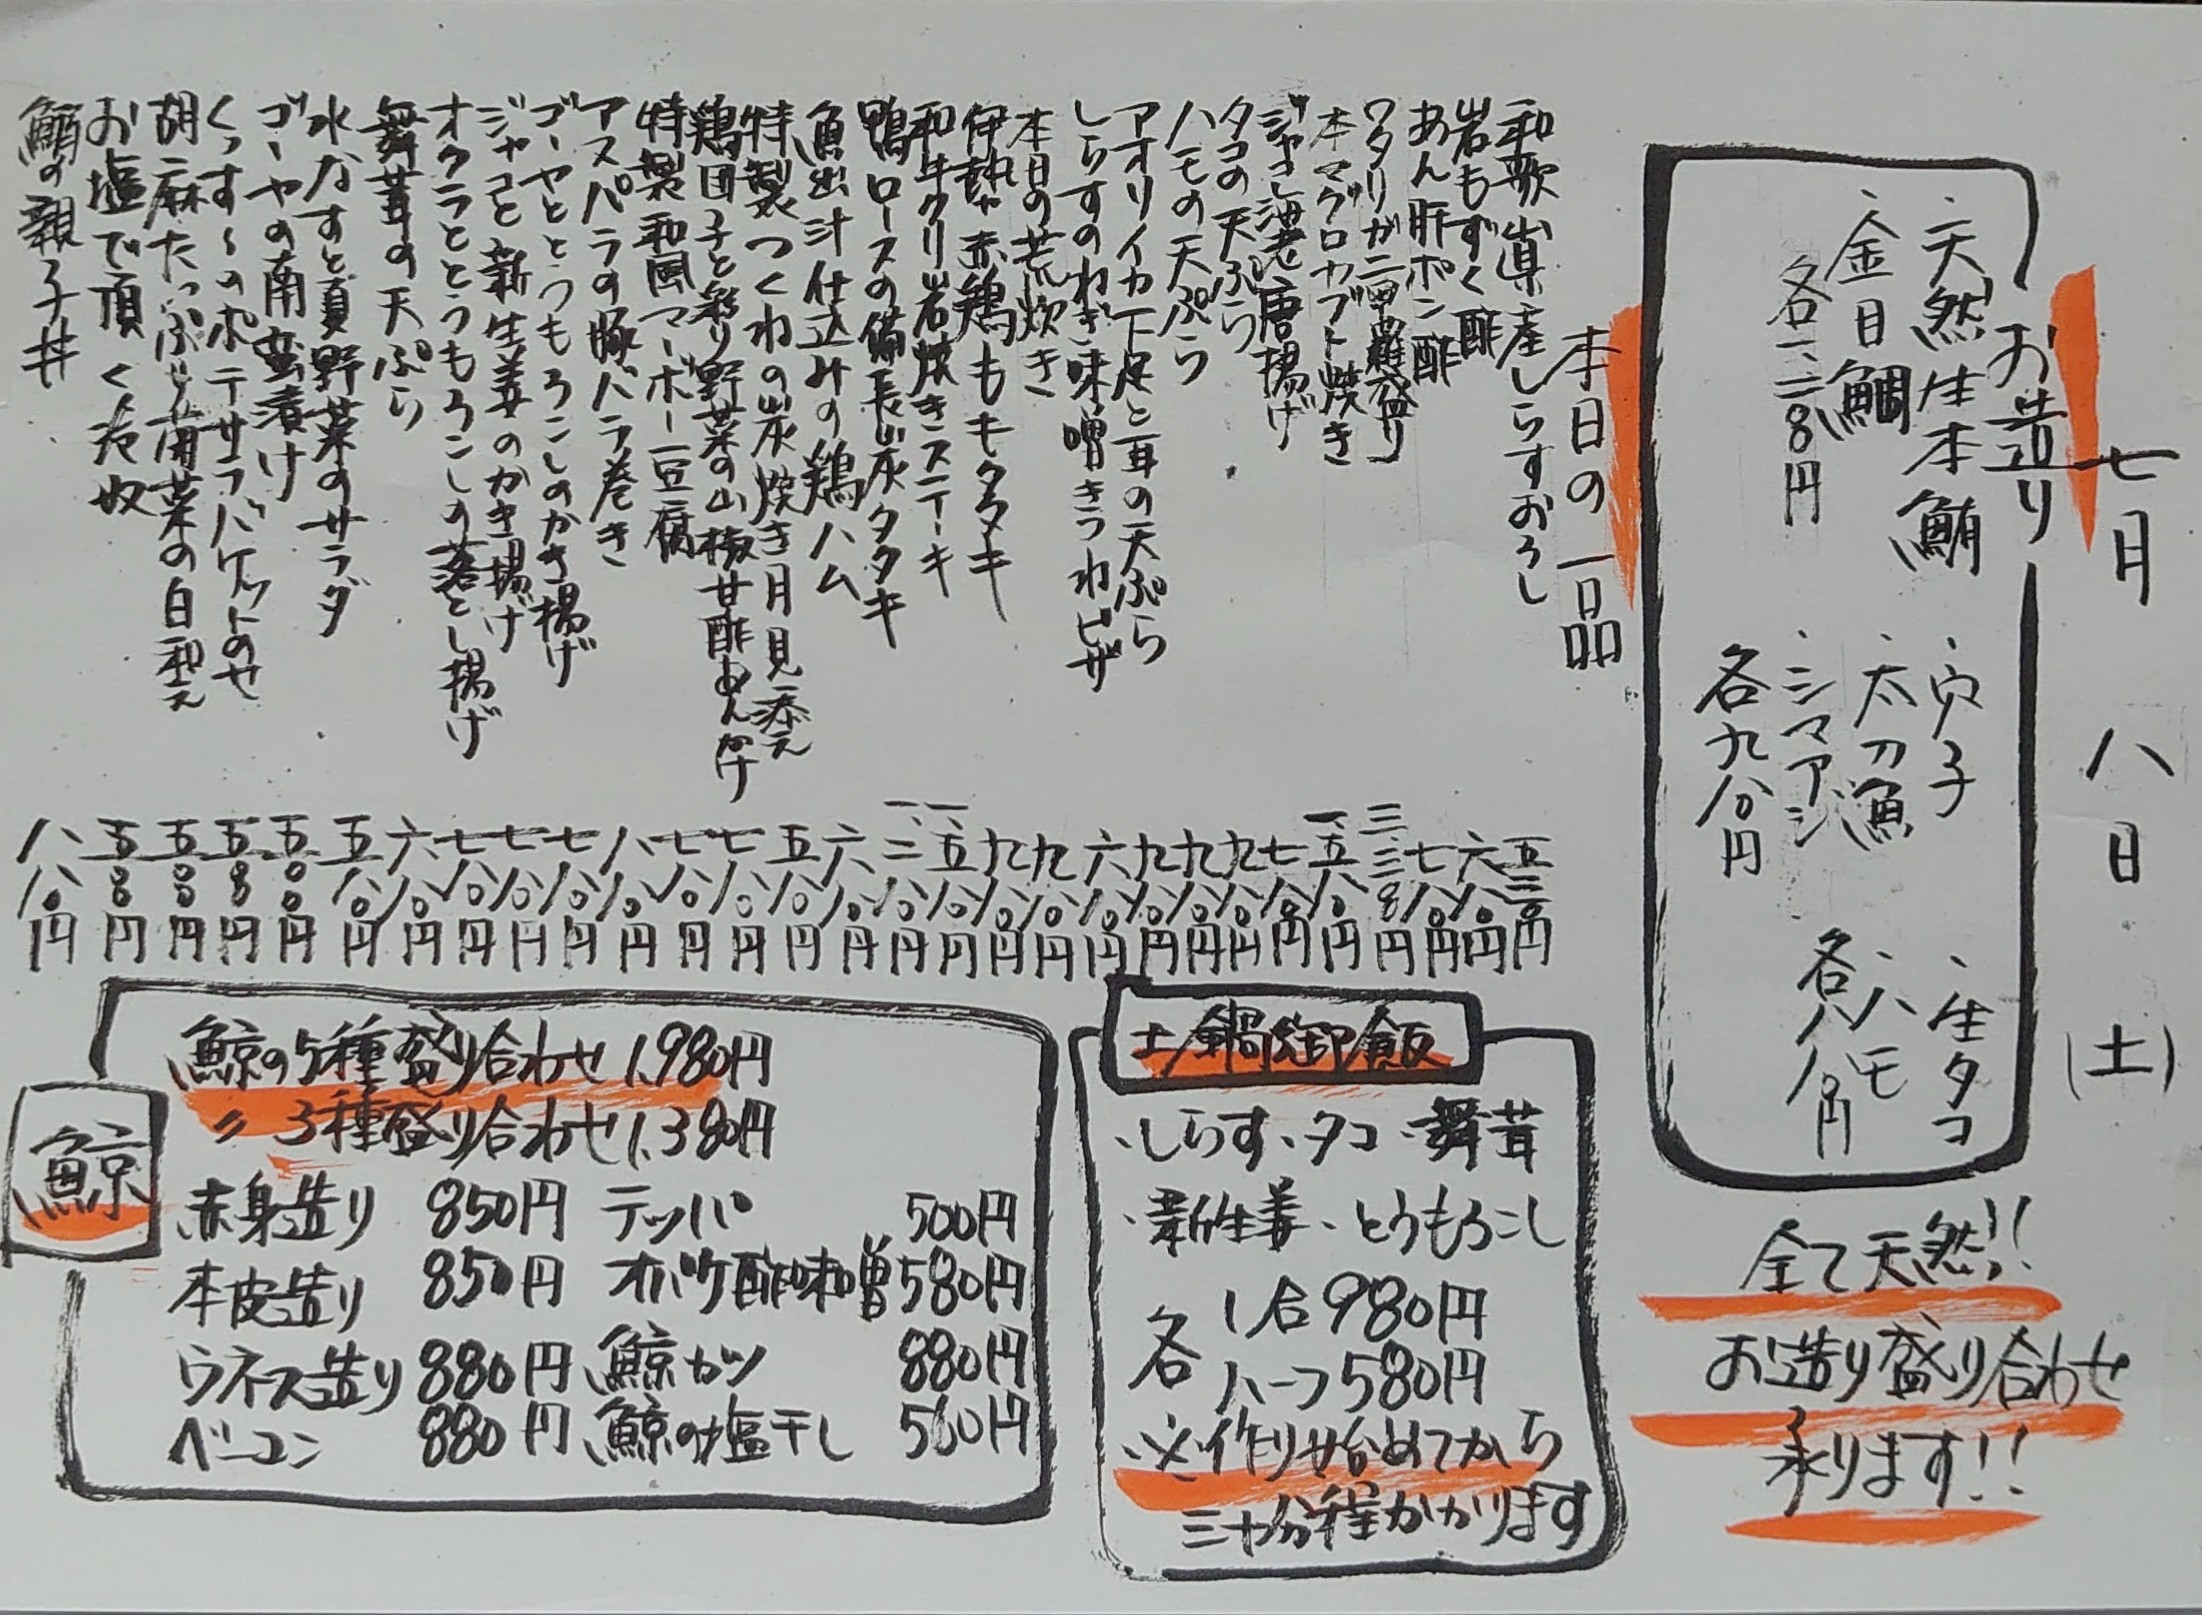 七月 八日 (土)
お造り
・天然生本鮪
・金目鯛
各一、二八〇円
・穴子
・太刀魚
・シマアジ
各九八〇円
・生タコ
・ハモ
各八八〇円
全て天然!!
お造り盛り合わせ
承ります!!
本日の一品
和歌山県産しらすおろし 五三〇円
岩もずく酢 六八〇円
あん肝ポン酢 七八〇円
ワタリガニ甲羅盛り
本マグロカブト焼き 一、五八〇円
ジャコ海老唐揚げ 七八〇円
タコの天ぷら 九八〇円
ハモの天ぷら 九八〇円
アオリイカ下足と耳の天ぷら 九八〇円
しらすのねぎ味噌きつねピザ 六八〇円
本日の荒炊き 九八〇円
伊勢赤鶏ももタタキ 九八〇円
和牛クリ岩焼きステーキ 一、五八〇円
鴨ロースの備長炭タタキ 一、二八〇円
魚出汁仕込みの鶏ハム 六八〇円
特製つくねの炭焼き月見添え 五八〇円
鶏団子と彩り野菜の山椒甘酢あんかけ 七八〇円
特製和風マーボー豆腐 七八〇円
アスパラの豚バラ巻き 八八〇円
ゴーヤととうもろこしのかき揚げ 七八〇円
ジャコと新生姜のかき揚げ 七八〇円
オクラととうもろこしの落とし揚げ 七八〇円
舞茸の天ぷら 六八〇円
水なすと夏野菜のサラダ 五八〇円
ゴーヤの南蛮漬け 五〇〇円
くっす〜のポテサラバケットのせ 五八〇円
胡麻たっぷり青菜の白和え 五〇〇円
お塩で頂く冷奴 五〇〇円
鮪の親子丼 八八〇円
土鍋御飯
・しらす・タコ・舞茸
・新生姜・とうもろこし
各 1合980円
ハーフ580円
※作り始めてから
三十分程かかります
鯨
鯨の5種盛り合わせ 1,980円
〃 3種盛り合わせ 1,380円
赤身造り 850円 テッパ 500円
本皮造り 850円 オバケ酢味噌 580円
ウネス造り 880円 鯨カツ 880円
ベーコン 880円 鯨の塩干し 500円